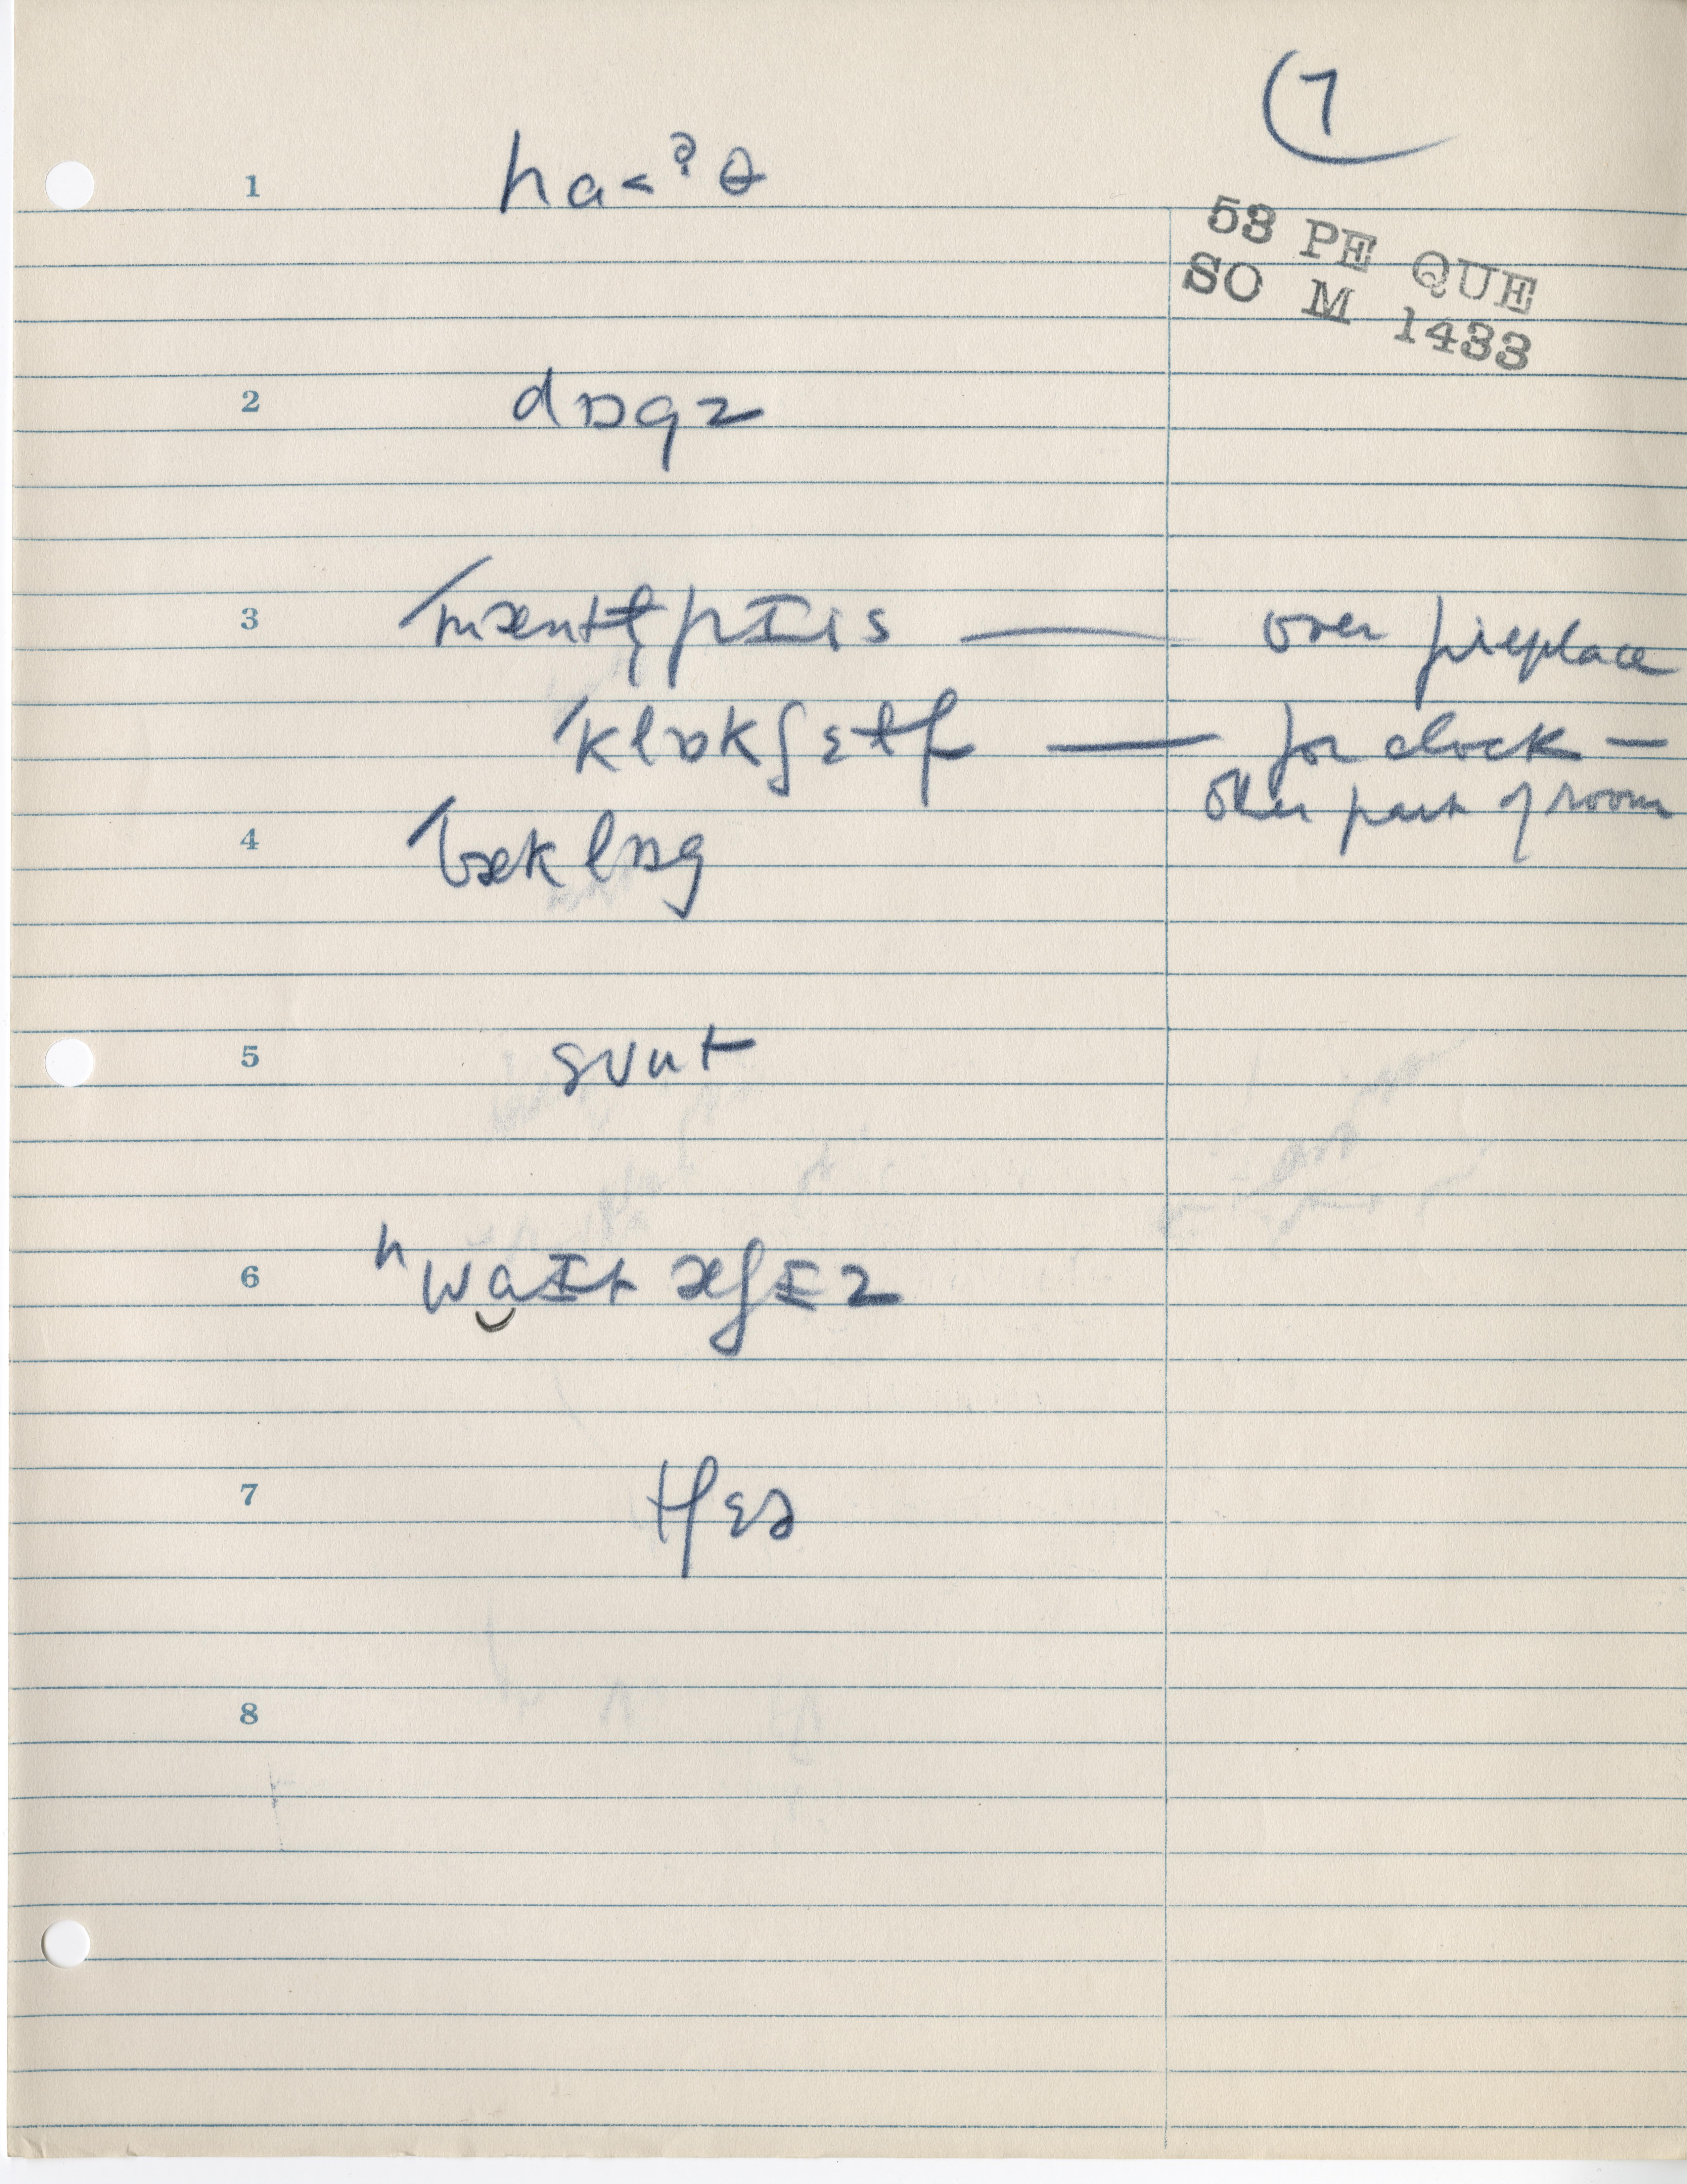 7
53 PE QUE
SO M 1433
1 ha<ˀθ
2 dɒgz
3 ˈmæntļpIis — over fireplace
ˈklɒkʃɛlf — for clock —
other part of room
4 ˈbæklɒg
5 sʊut
6 ʰwaɪt æʃɪz
7 tʃɛə
8